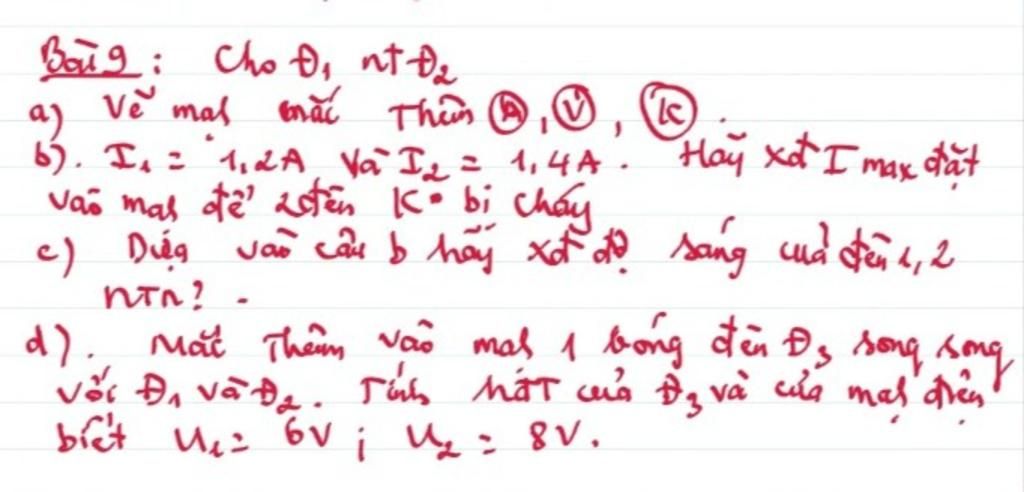 Bài 9 : Cho Đ₁ nt Đ₂
a) Vẽ mạh mắc Thêm Ⓐ, Ⓥ, Ⓚ.
b). I₁ = 1,2A và I₂ = 1,4A. Hãy xđ I max đặt
vào mạh để 2 đèn K° bị cháy
c) Dựa vào câu b hãy xđ độ sáng của đèn 1, 2
nTn? .
d). Mắc Thêm vào mạh 1 bóng đèn Đ₃ song song
với Đ₁ và Đ₂. Tính HĐT của Đ₃ và của mạh điện
biết U₁ = 6V ; U₂ = 8V.